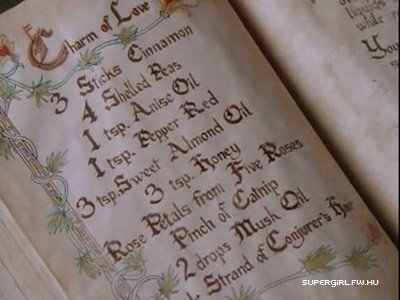 Charm of
3 Sticks Cinnamon
4 Shelled Peas
1 tsp. Anise Oil
1 tsp. Pepper Red
3 tsp. Sweet Almond Oil
3 tsp. Honey
Rose Petals from Five Roses
Pinch of Catnip
2 drops Musk Oil
Strand of Conjurer's Hair
while
You
SUPERGIRL.FW.HU